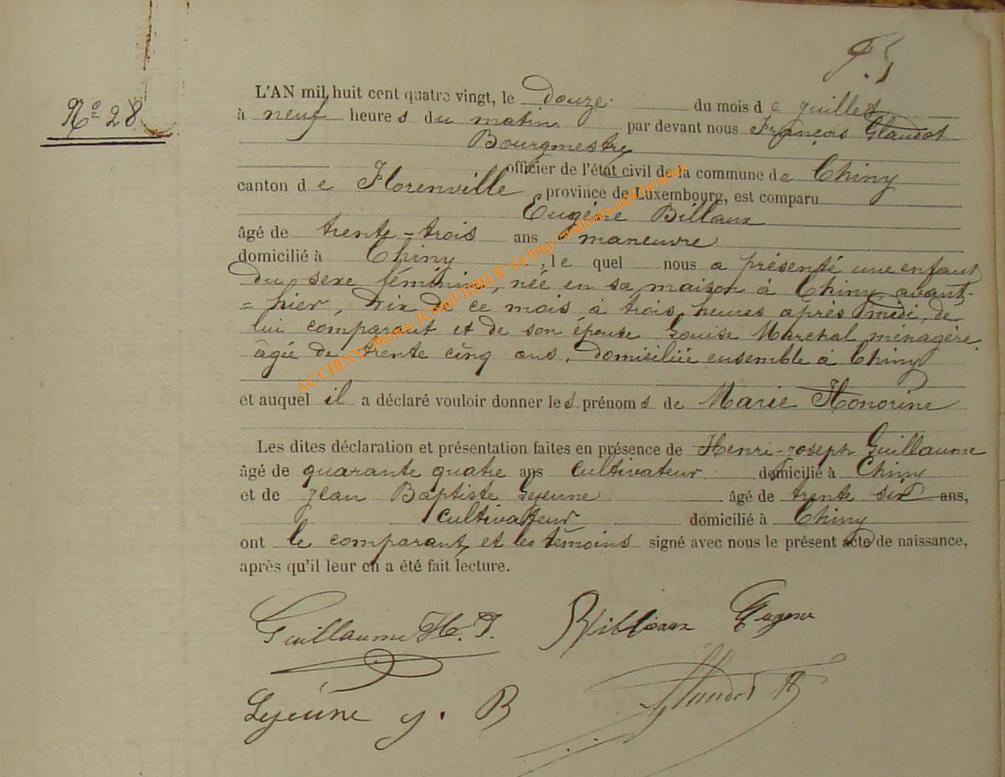 Nº 28
L'AN mil huit cent quatre vingt, le douze du mois de juillet
à neuf heures du matin par devant nous François Glaudot
Bourgmestre
officier de l'état civil de la commune de Chiny
canton de Florenville province de Luxembourg, est comparu
Eugène Billaux
âgé de trente-trois ans maneuvre
domicilié à Chiny, lequel nous a présenté une enfant
du sexe féminin, née en sa maison à Chiny avant-
=hier, dix de ce mois à trois heures après midi, de
lui comparant et de son épouse Louise Marechal ménagère
âgée de trente cinq ans, domiciliée ensemble à Chiny
et auquel il a déclaré vouloir donner les prénoms de Marie Honorine
Les dites déclaration et présentation faites en présence de Henri-Joseph Guillaume
âgé de quarante quatre ans cultivateur domicilié à Chiny
et de Jean Baptiste Lejeune âgé de trente six ans,
cultivateur domicilié à Chiny
ont le comparant et les témoins signé avec nous le présent acte de naissance,
après qu'il leur en a été fait lecture.
Guillaume H. J. Billaux Eugène
Lejeune J. B Glaudot F
AC CHINY Photos